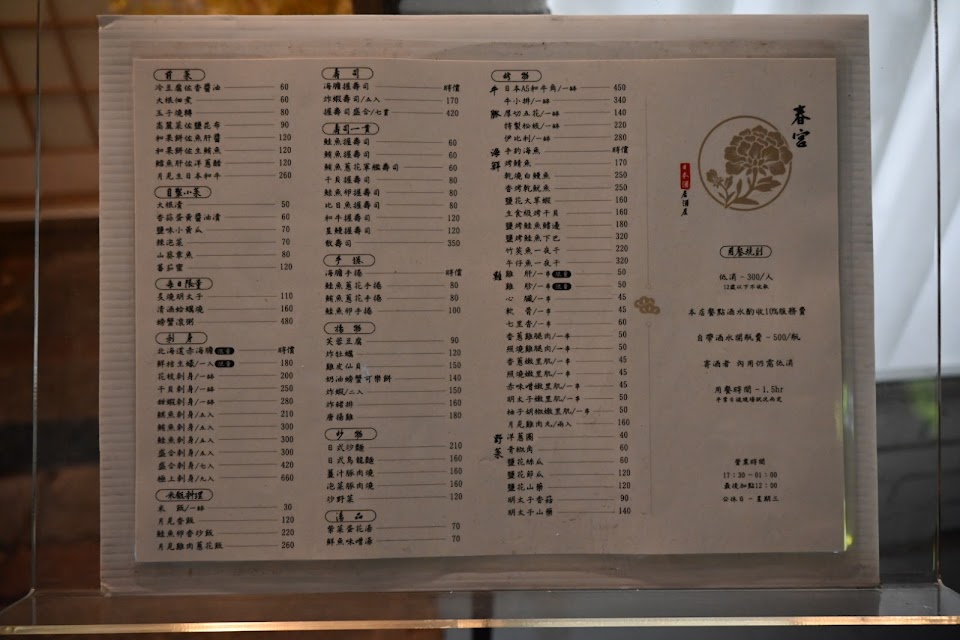 前菜
冷豆腐佐香醬油 60
大根佃煮 60
玉子燒轉 80
高麗菜佐鹽花布 90
和果餅佐魚肝醬 120
和果餅佐生鮪魚 120
鱈魚肝佐洋蔥醋 120
月見生日本和牛 260
自製小菜
大根漬 50
香菇蛋黃醬油漬 60
鹽味小黃瓜 70
辣泡菜 70
山葵章魚 80
蕃茄蜜 120
每日限量
炙燒明太子 110
清酒蛤蠣燒 160
螃蟹凍粥 480
刺身
北海道赤海膽 限量 時價
鮮牡生蠔/一入 限量 180
花枝刺身/一 200
干貝刺身/一 250
甜蝦刺身/一 280
旗魚刺身/五入 210
鮪魚刺身/五入 300
鮭魚刺身/五入 300
盛合刺身/五入 300
盛合刺身/七入 420
極上刺身/九入 660
米飯料理
米飯/一 30
月見香飯 120
鮭魚卵香炒飯 220
月見雞肉蔥花飯 260
壽司
海膽握壽司 時價
炸蝦壽司/五入 170
握壽司盛合/七貫 420
壽司一貫
鮭魚握壽司 60
鮪魚握壽司 60
鮪魚蔥花軍艦壽司 60
干貝握壽司 80
鮭魚卵握壽司 80
比目魚握壽司 80
和牛握壽司 120
星鰻握壽司 120
散壽司 350
手捲
海膽手捲 時價
鮭魚蔥花手捲 80
鮪魚蔥花手捲 80
鮭魚卵手捲 100
揚物
芙蓉豆腐 90
炸牡蠣 120
雞皮仙貝 150
奶油螃蟹可樂餅 140
炸蝦/二入 150
炸豬排 160
唐揚雞 180
炒物
日式炒麵 210
日式烏龍麵 160
薑汁豚肉燒 160
泡菜豚肉燒 160
炒野菜 120
湯品
紫菜蛋花湯 70
鮮魚味噌湯 70
烤物
牛
日本A5和牛角/一 450
牛小排/一 340
豚
厚切五花/一 140
特製松板/一 220
伊比利/一 280
海鮮
手釣海魚 時價
烤鯖魚 170
乾燒白鰻魚 250
香烤乾魷魚 250
鹽花大草蝦 160
主食級烤干貝 160
鹽烤鮭魚鰭邊 180
鹽烤鮭魚下巴 320
竹筴魚一夜干 220
午仔魚一夜干 320
雞
雞肝/一串 限量 50
雞胗/一串 限量 50
心臟/一串 45
軟骨/一串 45
七里香/一串 60
香蔥雞腿肉/一串 50
照燒雞腿肉/一串 50
香蔥嫩里肌/一串 45
照燒嫩里肌/一串 45
赤味噌嫩里肌/一串 45
明太子嫩里肌/一串 50
柚子胡椒嫩里肌/一串 50
月見雞肉丸/兩入 160
野菜
洋蔥圈 40
青椒角 60
鹽花絲瓜 60
鹽花節瓜 120
鹽花山藥 120
明太子香菇 90
明太子山藥 140
春宮
日本酒
居酒屋
用餐規則
低消-300/人
12歲以下不收取
本店餐點酒水酌收10%服務費
自帶酒水開瓶費-500/瓶
寄酒者 內用仍需低消
用餐時間-1.5hr
平常日視現場狀況而定
營業時間
17:30-01:00
最後加點12:00
公休日-星期三